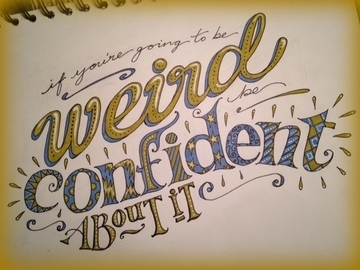 if you're going to be
weird
be
confident
ABOUT iT